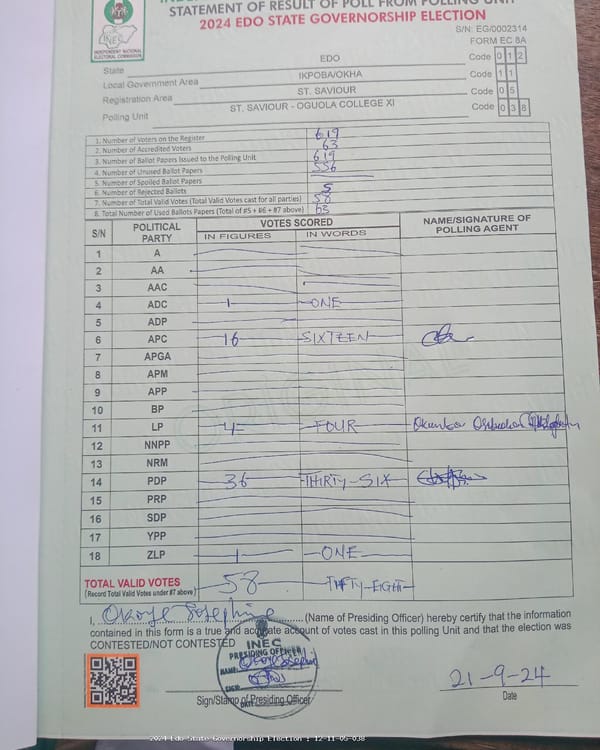 STATEMENT OF RESULT OF POLL FROM POLLING UNIT
2024 EDO STATE GOVERNORSHIP ELECTION
INEC
INDEPENDENT NATIONAL ELECTORAL COMMISSION
S/N: EG/0002314
FORM EC 8A
State EDO Code 0 1 2
Local Government Area IKPOBA/OKHA Code 1 1
Registration Area ST. SAVIOUR Code 0 5
Polling Unit ST. SAVIOUR - OGUOLA COLLEGE XI Code 0 3 8
1. Number of Voters on the Register 619
2. Number of Accredited Voters 63
3. Number of Ballot Papers Issued to the Polling Unit 619
4. Number of Unused Ballot Papers 556
5. Number of Spoiled Ballot Papers
6. Number of Rejected Ballots 5
7. Number of Total Valid Votes (Total Valid Votes cast for all parties) 58
8. Total Number of Used Ballots Papers (Total of #5 + #6 + #7 above) 63
S/N POLITICAL PARTY VOTES SCORED NAME/SIGNATURE OF POLLING AGENT
IN FIGURES IN WORDS
1 A
2 AA
3 AAC
4 ADC 1 ONE
5 ADP
6 APC 16 SIXTEEN
7 APGA
8 APM
9 APP
10 BP
11 LP 4 FOUR
12 NNPP
13 NRM
14 PDP 36 THIRTY-SIX
15 PRP
16 SDP
17 YPP
18 ZLP 1 ONE
TOTAL VALID VOTES 58 FIFTY-EIGHT
(Record Total Valid Votes under #7 above)
I, Okoye Josephine (Name of Presiding Officer) hereby certify that the information
contained in this form is a true and accurate account of votes cast in this polling Unit and that the election was
CONTESTED/NOT CONTESTED
INEC
PRESIDING OFFICER
NAME: Okoye Josephine
SIGN:
DATE
21-9-24
Sign/Stamp of Presiding Officer Date
2024 Edo State Governorship Election : 12-11-05-038